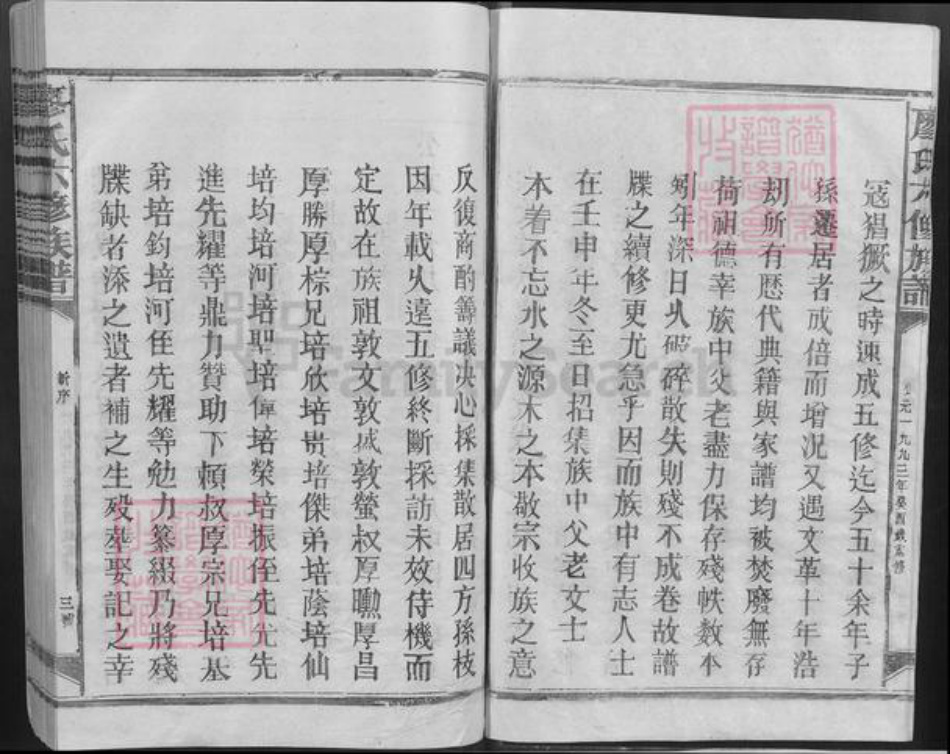 廖氏六修族譜
公元一九九三年癸酉歲六修
寇猖獗之時湅成五修迄今五十余年子
孫遷居者成倍而增況又遇文革十年浩
刧所有歷代典籍與家譜均被焚廢無存
荷祖德幸族中父老盡力保存殘帙数本
矧年深日乆破碎散失則殘不成卷故譜
牒之續修更尤急乎因而族中有志人士
在壬申年冬至日招集族中父老文士
本着不忘水之源木之本敬宗收族之意
反復商酌籌議决心採集散居四方孫枝
因年載乆遠五修終斷採訪未效侍機而
定故在族祖敦文敦威敦螢叔厚勲厚昌
厚勝厚棕兄培欣培贵培傑弟培蔭培仙
培均培河培聖培偉培榮培振侄先尤先
進先耀等鼎力贊助下頼叔厚宗兄培基
弟培鈞培河侄先耀等勉力纂綴乃將殘
牒缺者添之遺者補之生殁塟娶記之幸
廖氏六修族譜
新序
三
FamilySearch